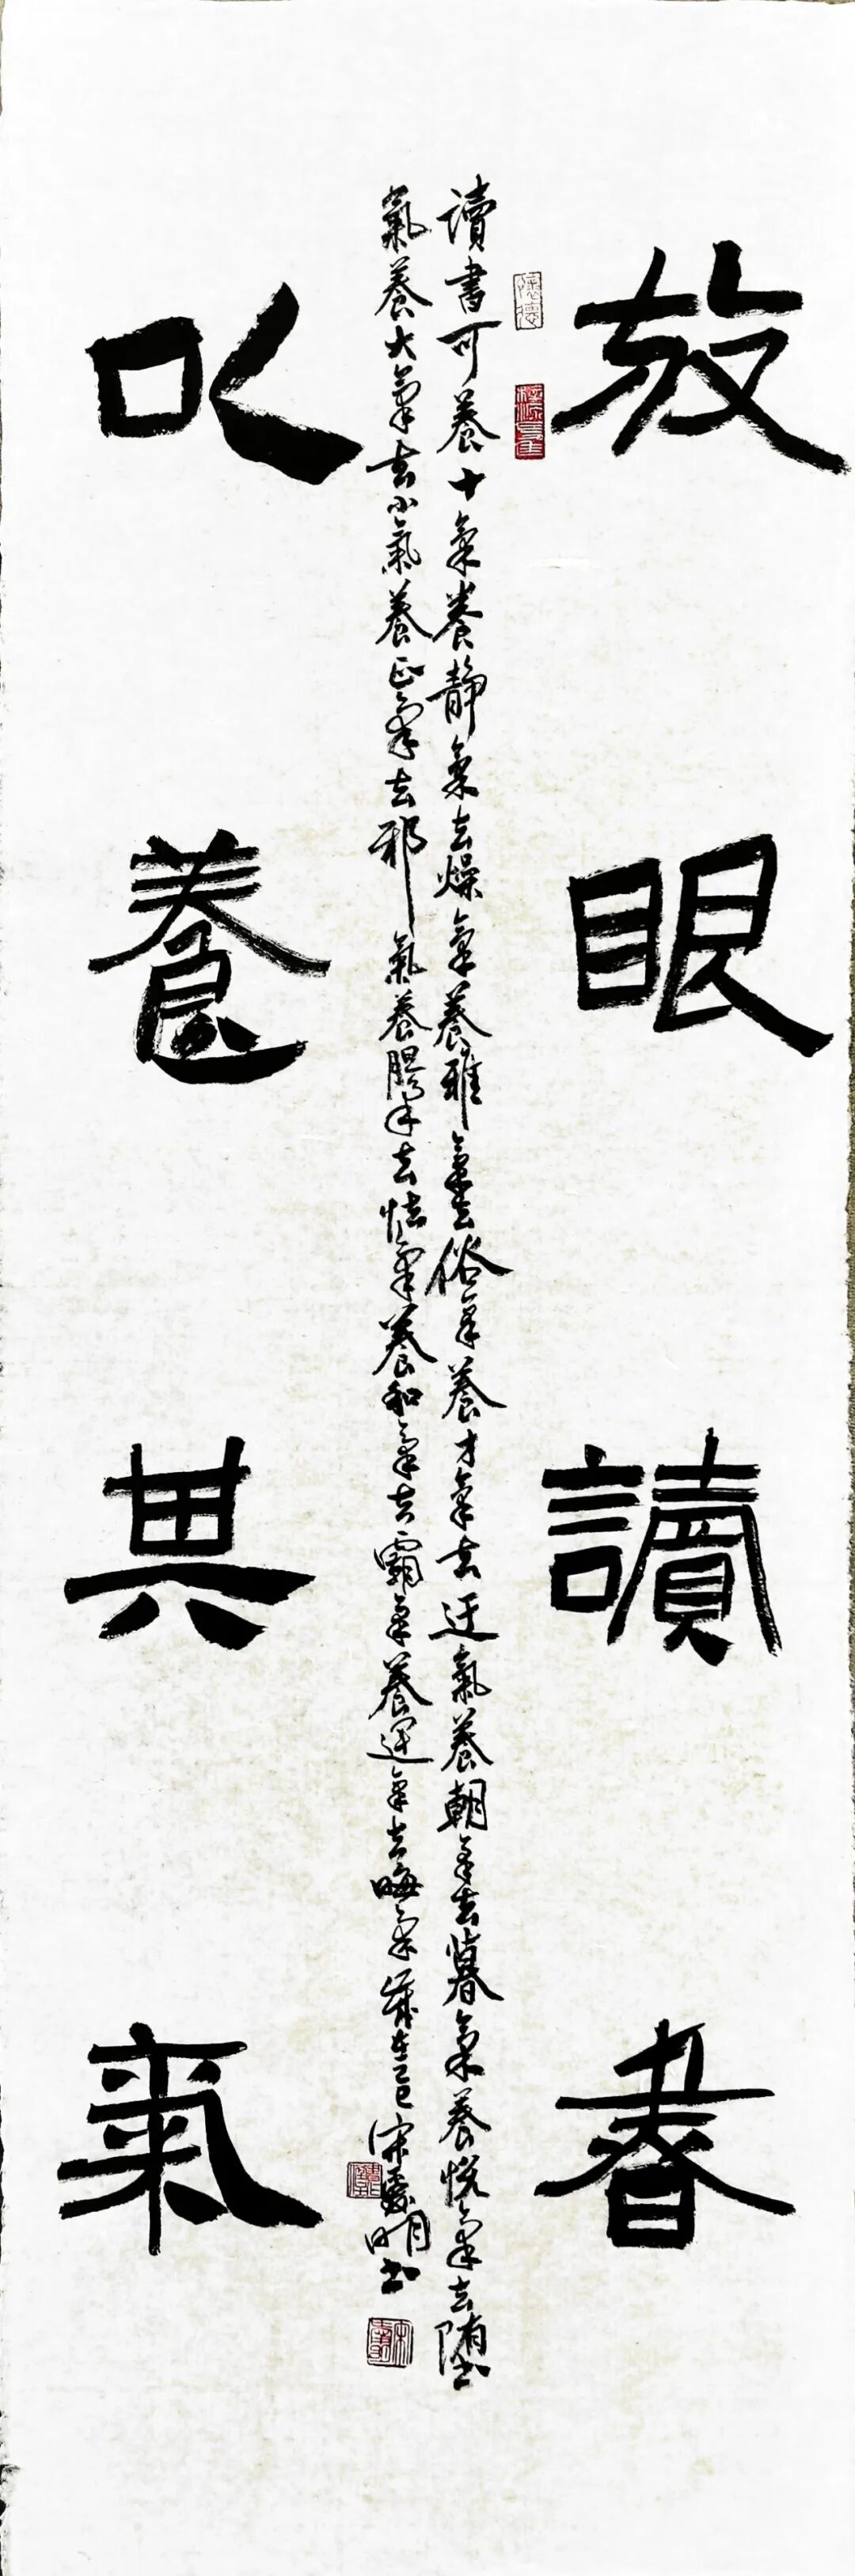 放眼讀書
以養其氣
讀書可養十氣養靜氣去燥氣養雅氣去俗氣養才氣去迂氣養朝氣去暮氣養悅氣去堕
氣養大氣去小氣養正氣去邪氣養膽氣去怯氣養和氣去霸氣養運氣去晦氣歲在乙巳宋明書